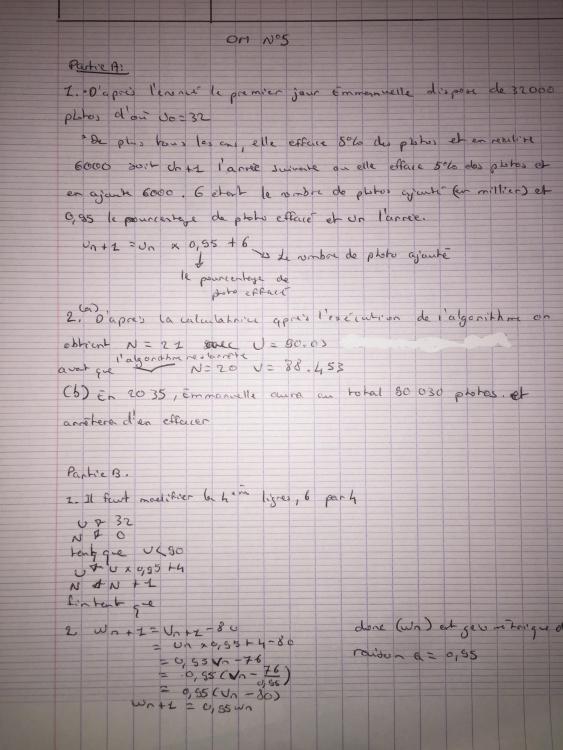 DM N°5
Partie A:
1. • D'après l'énoncé le premier jour Emmanuelle dispose de 32000
photos d'où U0 = 32
• De plus tous les ans, elle efface 5% des photos et en
6000 soit Un+1 l'année suivante ou elle efface 5% des photos et
en ajoute 6000. 6 étant le nombre de photos ajouté (en millier) et
0,95 le pourcentage de photo effacé et Un l'année.
Un+1 = Un x 0,95 + 6 → Le nombre de photo ajouté
↓
le pourcentage de
photo effacé
2. (a) D'après la calculatrice après l'exécution de l'algorithme on
obtient N = 21 avec U = 90.03
avant que l'algorithme N=20 U = 88.453
(b) En 2035, Emmanuelle aura au total 90 030 photos. et
arrêtera d'en effacer
Partie B.
1. Il faut modifier la 4ème lignes, 6 par 4
U ← 32
N ← 0
tant que U < 90
U ← U x 0,95 + 4
N ← N + 1
fin tant que
2. Wn+1 = Un+1 - 80
= Un x 0,95 + 4 - 80
= 0,95 Un - 76
= 0,95 (Un - 76/0,95)
= 0,95 (Un - 80)
Wn+1 = 0,95 Wn
donc (Wn) est géométrique d
raison q = 0,95